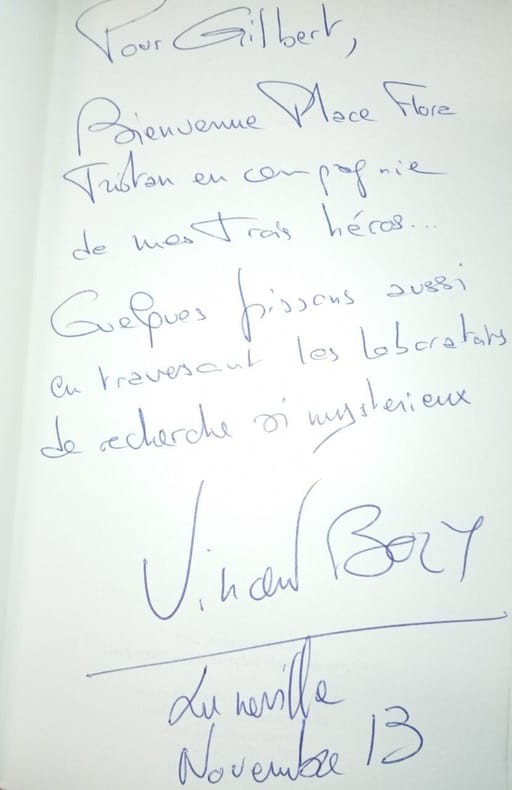 Pour Gilbert,
Bienvenue Place Flora
Tristan en compagnie
de mes trois héros...
Quelques frissons aussi
en traversant les laboratoires
de recherche si mystérieux
Vincent Bory
Luneville
Novembre 13